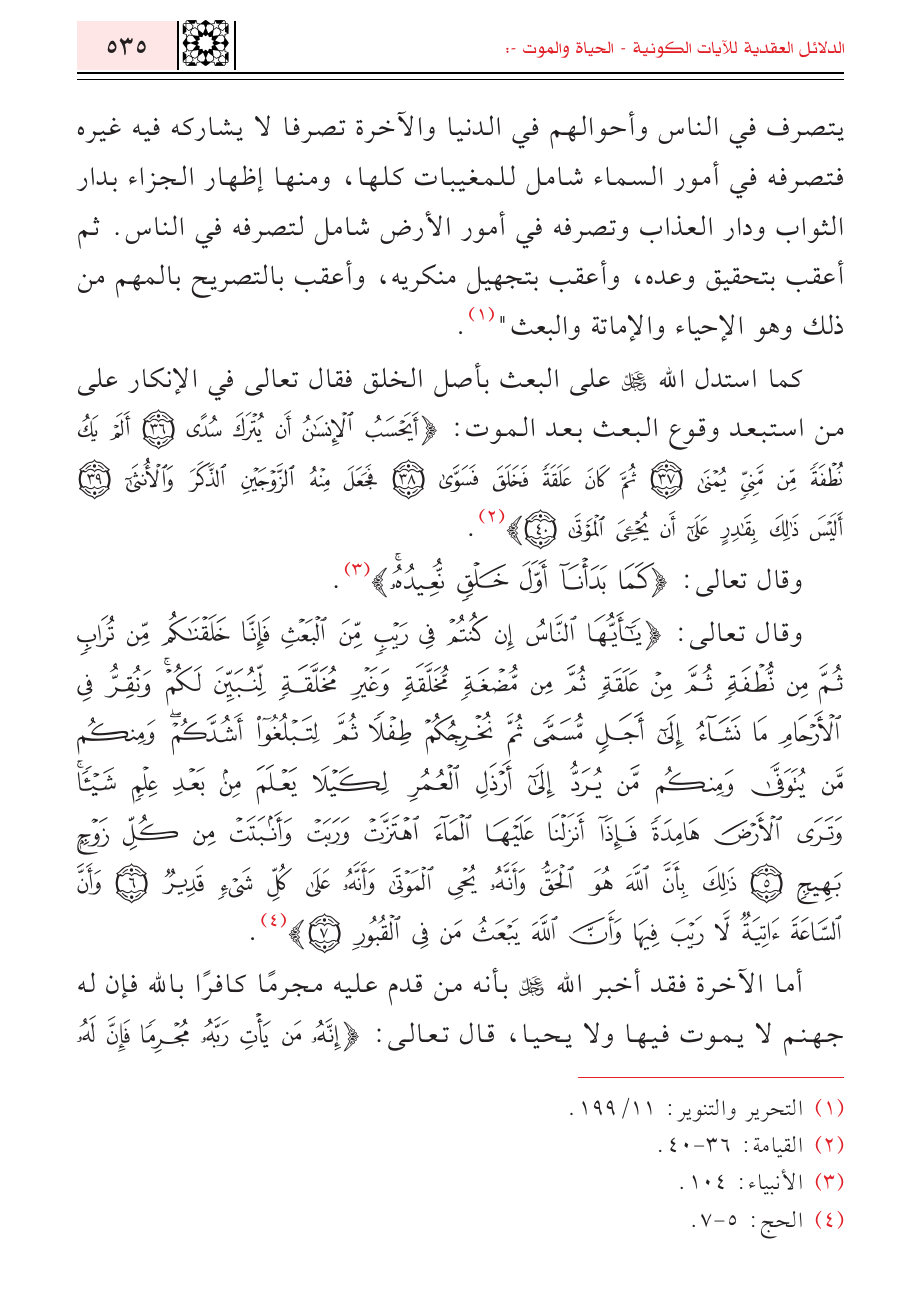 الدلائل العقدية للآيات الكونية - الحياة والموت -:
٥٣٥
يتصرف في الناس وأحوالهم في الدنيا والآخرة تصرفا لا يشاركه فيه غيره
فتصرفه في أمور السماء شامل للمغيبات كلها، ومنها إظهار الجزاء بدار
الثواب ودار العذاب وتصرفه في أمور الأرض شامل لتصرفه في الناس. ثم
أعقب بتحقيق وعده، وأعقب بتجهيل منكريه، وأعقب بالتصريح بالمهم من
ذلك وهو الإحياء والإماتة والبعث"(١).
كما استدل الله ﷻ على البعث بأصل الخلق فقال تعالى في الإنكار على
من استبعد وقوع البعث بعد الموت: ﴿أَيَحۡسَبُ ٱلۡإِنسَٰنُ أَن يُتۡرَكَ سُدًى ٣٦ أَلَمۡ يَكُ
نُطۡفَةٗ مِّن مَّنِيّٖ يُمۡنَىٰ ٣٧ ثُمَّ كَانَ عَلَقَةٗ فَخَلَقَ فَسَوَّىٰ ٣٨ فَجَعَلَ مِنۡهُ ٱلزَّوۡجَيۡنِ ٱلذَّكَرَ وَٱلۡأُنثَىٰٓ ٣٩
أَلَيۡسَ ذَٰلِكَ بِقَٰدِرٍ عَلَىٰٓ أَن يُحۡـِۧيَ ٱلۡمَوۡتَىٰ ٤٠﴾(٢).
وقال تعالى: ﴿كَمَا بَدَأۡنَآ أَوَّلَ خَلۡقٖ نُّعِيدُهُۥۚ﴾(٣).
وقال تعالى: ﴿يَٰٓأَيُّهَا ٱلنَّاسُ إِن كُنتُمۡ فِي رَيۡبٖ مِّنَ ٱلۡبَعۡثِ فَإِنَّا خَلَقۡنَٰكُم مِّن تُرَابٖ
ثُمَّ مِن نُّطۡفَةٖ ثُمَّ مِنۡ عَلَقَةٖ ثُمَّ مِن مُّضۡغَةٖ مُّخَلَّقَةٖ وَغَيۡرِ مُخَلَّقَةٖ لِّنُبَيِّنَ لَكُمۡۚ وَنُقِرُّ فِي
ٱلۡأَرۡحَامِ مَا نَشَآءُ إِلَىٰٓ أَجَلٖ مُّسَمّٗى ثُمَّ نُخۡرِجُكُمۡ طِفۡلٗا ثُمَّ لِتَبۡلُغُوٓاْ أَشُدَّكُمۡۖ وَمِنكُم
مَّن يُتَوَفَّىٰ وَمِنكُم مَّن يُرَدُّ إِلَىٰٓ أَرۡذَلِ ٱلۡعُمُرِ لِكَيۡلَا يَعۡلَمَ مِنۢ بَعۡدِ عِلۡمٖ شَيۡـٔٗاۚ
وَتَرَى ٱلۡأَرۡضَ هَامِدَةٗ فَإِذَآ أَنزَلۡنَا عَلَيۡهَا ٱلۡمَآءَ ٱهۡتَزَّتۡ وَرَبَتۡ وَأَنۢبَتَتۡ مِن كُلِّ زَوۡجِۭ
بَهِيجٖ ٥ ذَٰلِكَ بِأَنَّ ٱللَّهَ هُوَ ٱلۡحَقُّ وَأَنَّهُۥ يُحۡيِ ٱلۡمَوۡتَىٰ وَأَنَّهُۥ عَلَىٰ كُلِّ شَيۡءٖ قَدِيرٞ ٦ وَأَنَّ
ٱلسَّاعَةَ ءَاتِيَةٞ لَّا رَيۡبَ فِيهَا وَأَنَّ ٱللَّهَ يَبۡعَثُ مَن فِي ٱلۡقُبُورِ ٧﴾(٤).
أما الآخرة فقد أخبر الله ﷻ بأنه من قدم عليه مجرمًا كافرًا بالله فإن له
جهنم لا يموت فيها ولا يحيا، قال تعالى: ﴿إِنَّهُۥ مَن يَأۡتِ رَبَّهُۥ مُجۡرِمٗا فَإِنَّ لَهُۥ
(١) التحرير والتنوير: ١٩٩/١١.
(٢) القيامة: ٣٦-٤٠.
(٣) الأنبياء: ١٠٤.
(٤) الحج: ٥-٧.